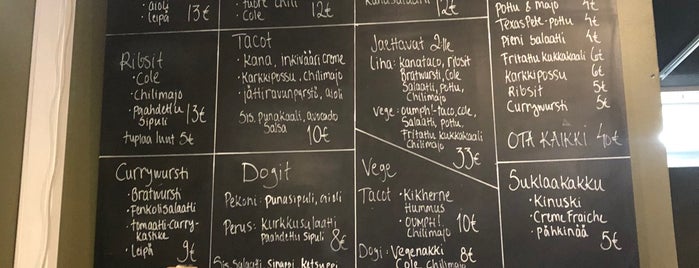 • aioli
• leipä 13€
• tuore chili
• Cole 12€
kanasalaatti 12€
Pottu & majo 4€
Texas Pete-pottu 4€
Pieni salaatti 4€
Fritattu kukkakaali 6€
Karkkipossu 6€
Ribsit 5€
Currywurst 5€
OTA KAIKKI 40€
Ribsit
• Cole
• Chilimajo
• Paahdettu Sipuli 13€
tuplaa luut 5€
Tacot
• Kana, inkivääri creme
• Karkkipossu, chilimajo
• jättiravunpyrstö, aioli
Sis. punakaali, avocado
Salsa 10€
Jaettavat 2:lle
Liha: kanataco, ribsit
Bratwurst, Cole
Salaatti, pottu,
Chilimajo
Vege: oumph!-taco, cole,
Salaatti, Pottu
Fritattu kukkakaali
Chilimajo
33€
Currywursti
• Bratwurst
• Fenkolisalaatti
• tomaatti-curry-
kastike
• Leipä 9€
Dogit
Pekoni: punasipuli, aioli
Perus: kurkkusalaatti
Paahdettu sipuli 8€
Sis. Salaatti Sinappi ketsuppi
Vege
Tacot • Kikherne
Hummus
• OUMPH! 10€
Chilimajo
Dogi: Vegenakki 8€
Cole, Chilimajo
Suklaakakku
• Kinuski
• Creme Fraiche
• pähkinää
5€